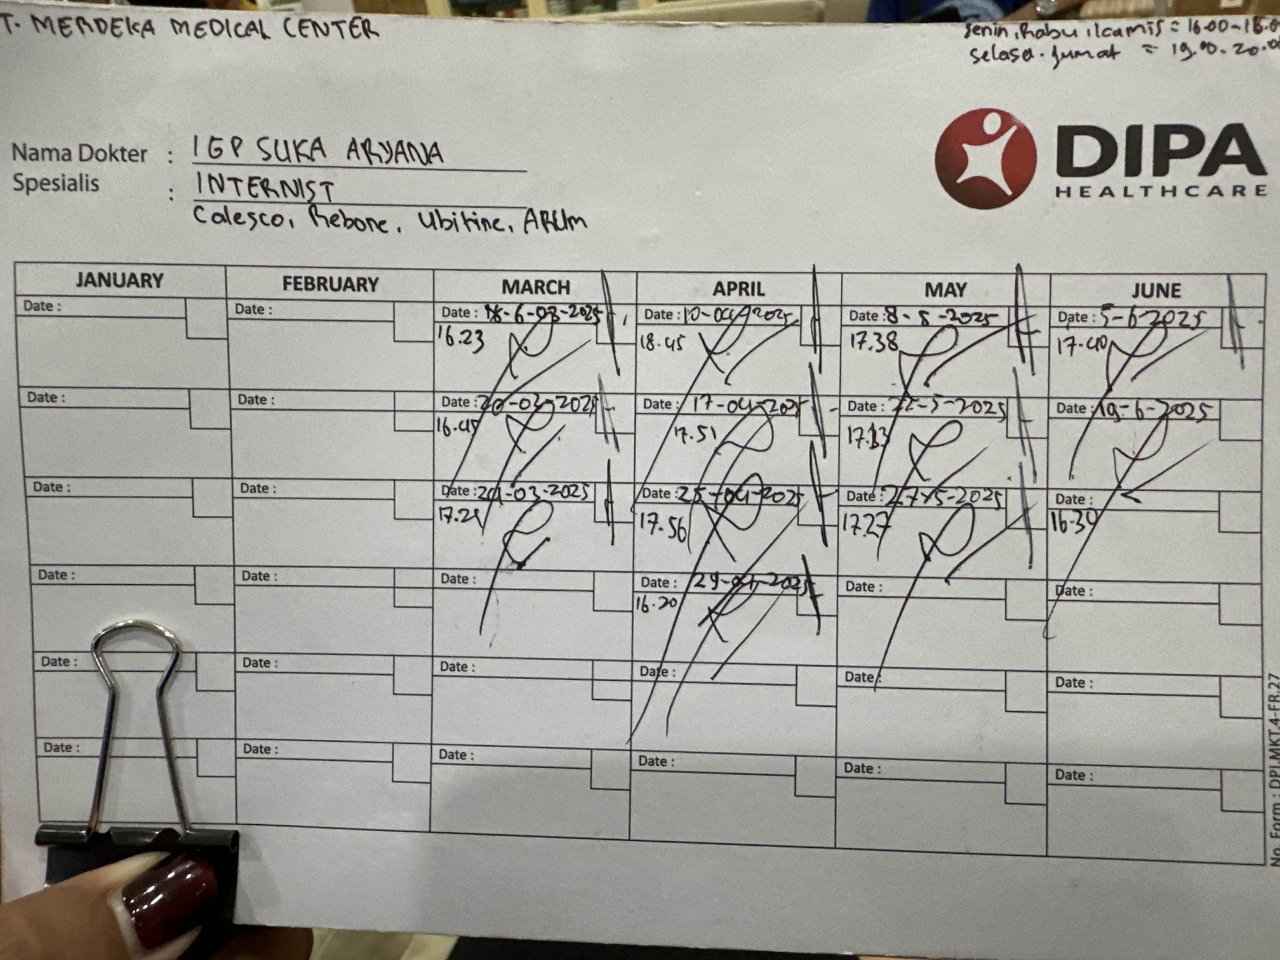 T. MERDEKA MEDICAL CENTER
Senin, Rabu, Kamis = 16.00-18.0
Selasa. Jumat = 19.00-20.00
DIPA
HEALTHCARE
Nama Dokter : IGP SUKA ARYANA
Spesialis : INTERNIST
Calesco, Rebone, Ubitine, ARUM
JANUARY FEBRUARY MARCH APRIL MAY JUNE
Date : Date : Date : 6-03-2025 Date : 10-04-2025 Date : 8-5-2025 Date : 5-6-2025
16.23 18.45 17.38 17.40
Date : Date : Date : 20-03-2025 Date : 17-04-2025 Date : 22-5-2025 Date : 19-6-2025
16.45 17.51 17.13
Date : Date : Date : 24-03-2025 Date : 25-04-2025 Date : 27-5-2025 Date :
17.56 17.27 16.30
Date : Date : Date : Date : 29-04-2025 Date : Date :
16.20
Date : Date : Date : Date : Date : Date :
Date : Date : Date : Date : Date : Date :
No. Form : DPI.MKT.4-FR.27